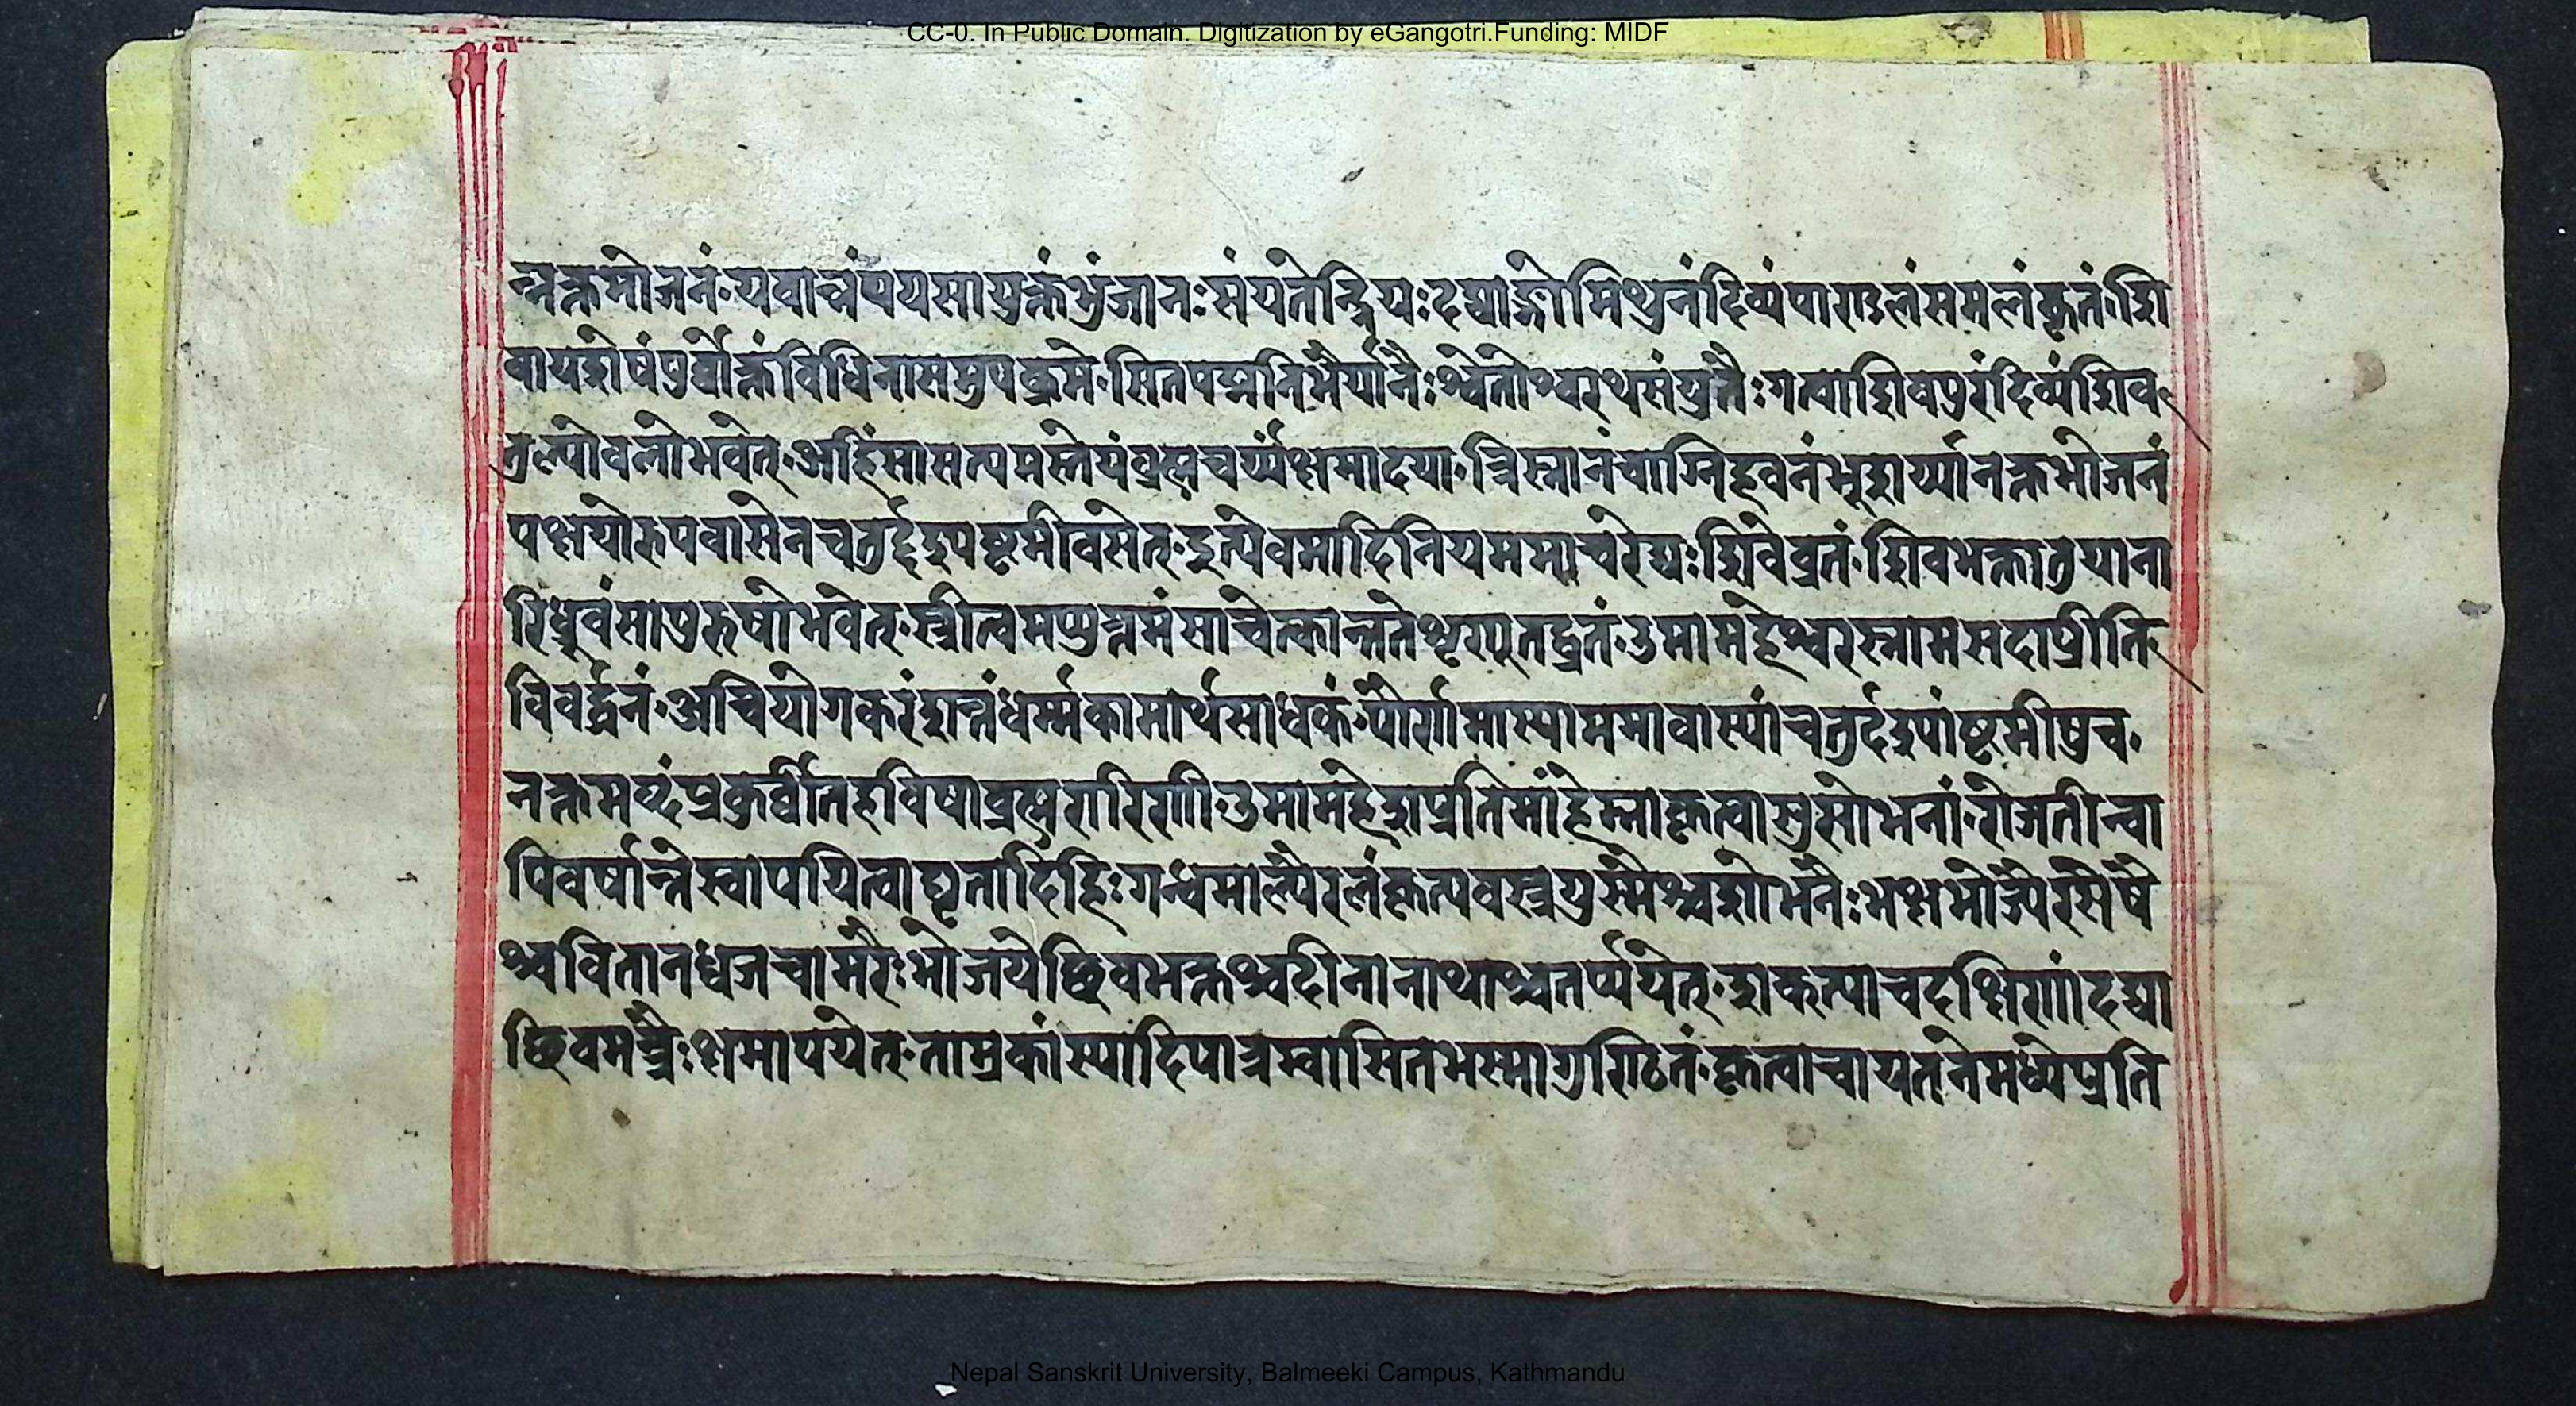 CC-0. In Public Domain. Digitization by eGangotri.Funding: MIDF
न्नक्तभोजनं॰यवान्नंपयसायुक्तंभुंजानःसंयतेन्द्रियःदद्याद्गोमिथुनंदिव्यंपाराडलंसमलंकृतं॰शि
वायशेषंपूर्वोक्तंविधिनासमुपक्रमे॰सितपद्मनिभैर्यानैःश्वेतोश्वरथसंयुतैःगत्वाशिवपुरंदिव्यंशिव
तुल्योवलोभवेत्॰अहिंसासत्यमस्तेयंव्रह्मचर्य्यंक्षमादया॰त्रिस्नानंचाग्निहवनंभूशर्य्यानक्तभोजनं
पक्षयोरुपवासेनचतुर्द्दश्यष्टमीवसेत्॰इत्येवमादिनियममाचरेद्यःशिवेव्रतं॰शिवभक्तातुयाना
रिध्रुवंसापुरुषोभवेत्॰स्त्रीत्वमप्युग्नमंसाचेत्कान्ततेशृणुतद्व्रतं॰उमामहेश्वरस्नामसदाप्रीति
विवर्द्धनं॰अचियोगकरंशान्तंधर्म्मकामार्थसाधकं॰पौर्णामास्याममावास्यांचतुर्दश्यांष्टमीषुच॰
नक्तमब्दंप्रकुर्वीतहविषाव्रह्मचारिणी॰उमामहेशप्रतिमांहेम्नाकृत्वासुसोभनां॰रोजतीन्वा
पिवर्षान्तेस्वापयित्वाघृतादिहिःगन्धमाल्यैरलंकृत्यवस्त्रयुग्मैश्चशोभनैःभक्षभोज्यैरसेषै
श्चवितानध्वजचामरैःभोजयेच्छिवभक्तश्चदीनानाथाश्चतर्प्पयेत्॰शक्त्याचदक्षिणांदद्या
च्छिवमन्त्रैःक्षमापयेत्॰ताम्रकांस्यादिपात्रम्वासितभस्मागुण्ठितं॰कृत्वाचायतनेमध्येप्रति
Nepal Sanskrit University, Balmeeki Campus, Kathmandu